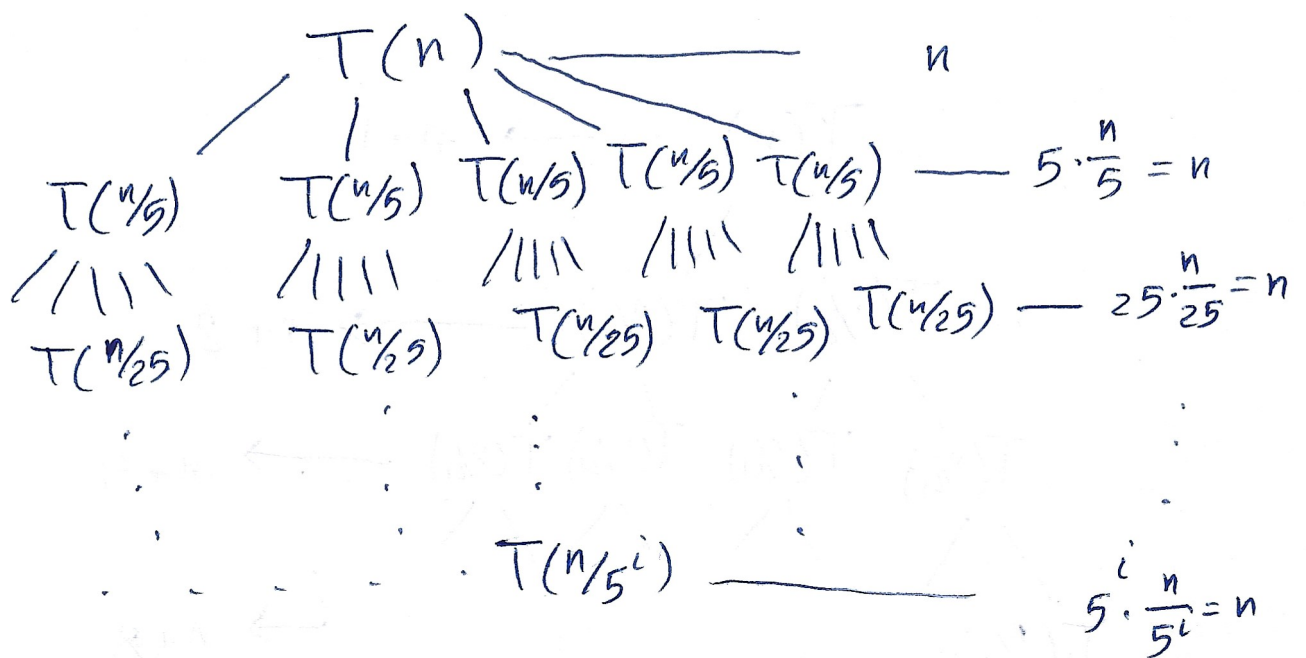 T(n) n
T(n/5) T(n/5) T(n/5) T(n/5) T(n/5) 5·n/5 = n
T(n/25) T(n/25) T(n/25) T(n/25) T(n/25) 25·n/25 = n
T(n/5^i) 5^i·n/5^i = n